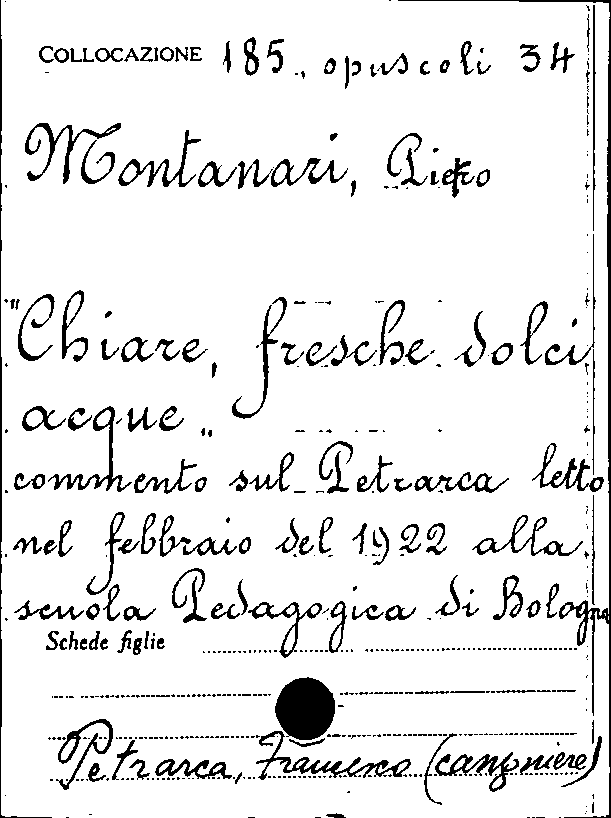 COLLOCAZIONE 185., opuscoli 34
Montanari, Piero
"Chiare, fresche dolci
acque„
commento sul Petrarca letto
nel febbraio del 1922 alla
scuola Pedagogica di Bologna
Schede figlie
Petrarca, Francesco (canzoniere)